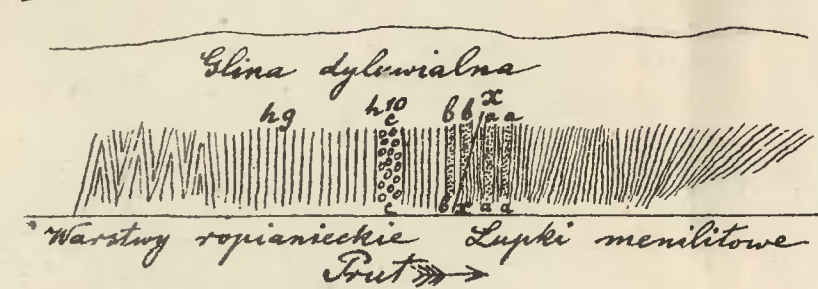 Glina dyluwialna
h9 h10 b b x
c a a
c b x a a
Warstwy ropianieckie Łupki menilitowe
Prut